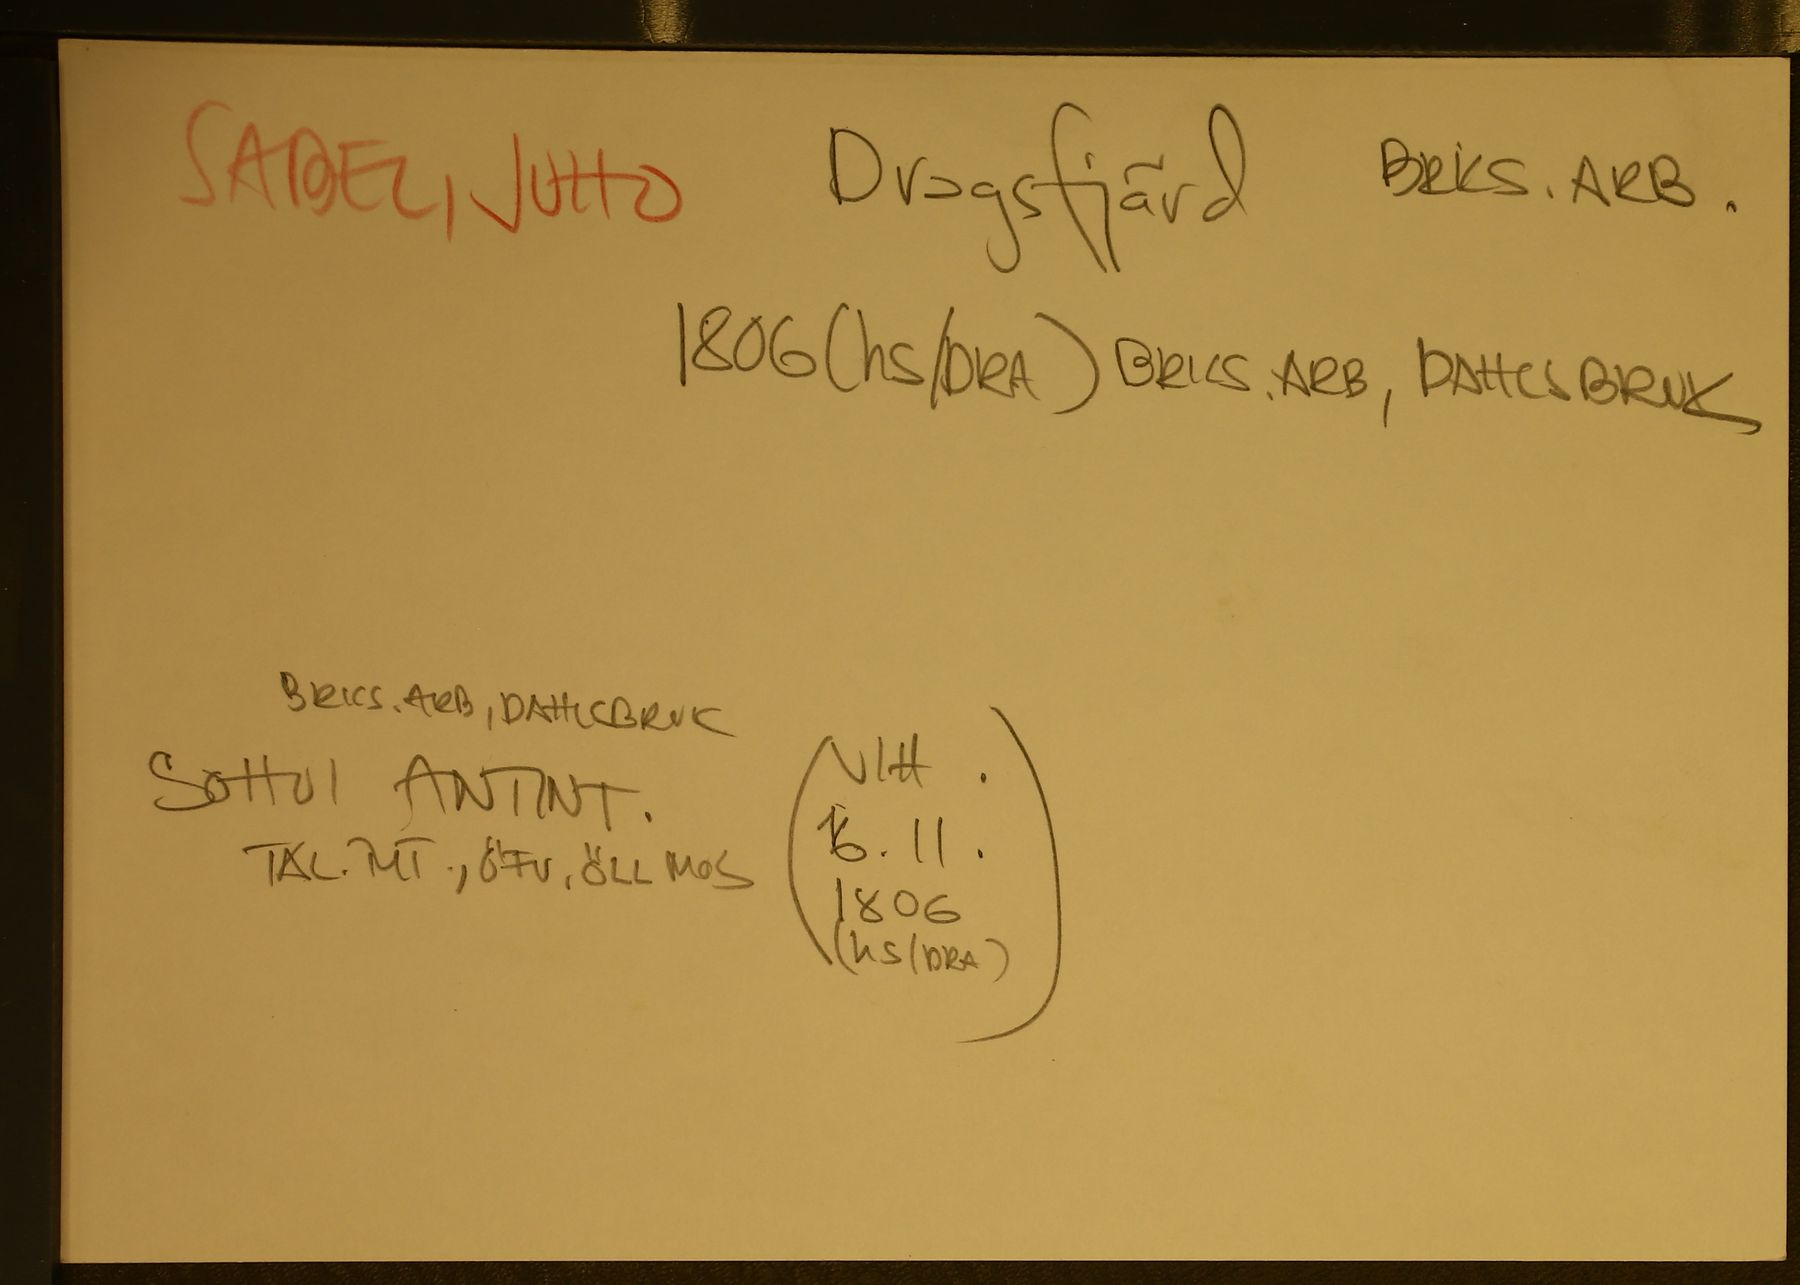 SABEL, JUHO Dragsfjärd BRKS. ARB.
1806 (hs/DRA) BRKS. ARB, DAHLSBRUK
BRKS. ARB, DAHLSBRUK
SOTTUI ANTINT.
TAL. MT., ÖFV. ÖLLMOS
(VIH.
16. 11.
1806
(hs/DRA))